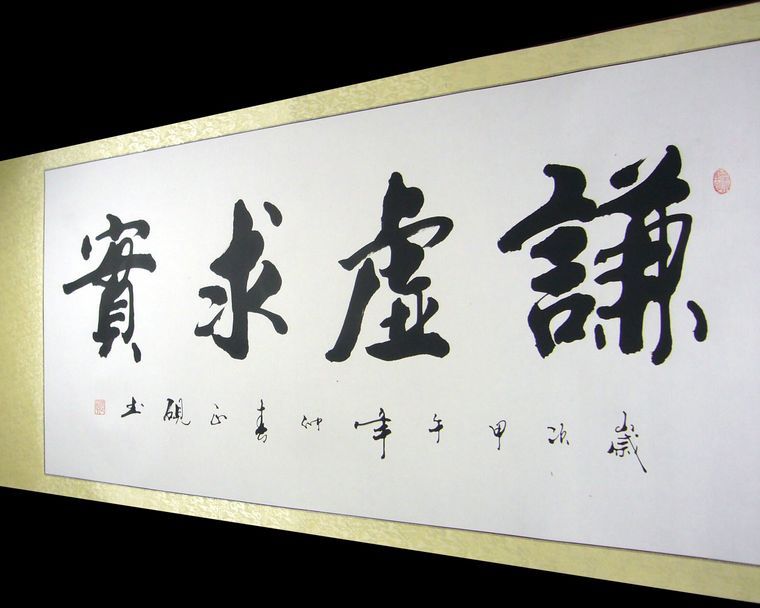 謙虛求實
歲次甲午年仲春正硯书